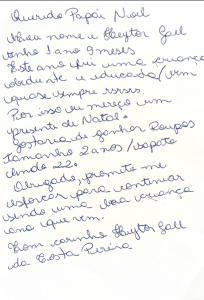 Querido Papai Noel
Meu nome é Heytor Gael
tenho 1 ano 9 meses
Este ano fui uma criança
obediente e educada, bem
quase sempre rsrsrs.
Por isso eu mereço um
presente de Natal.
Gostaria de ganhar Roupas
tamanho 2 anos / sapato
22.
Obrigado, prometo me
esforçar para continuar
sendo uma boa criança
ano que vem.
Com carinho Heytor Gael
da Costa Pereira